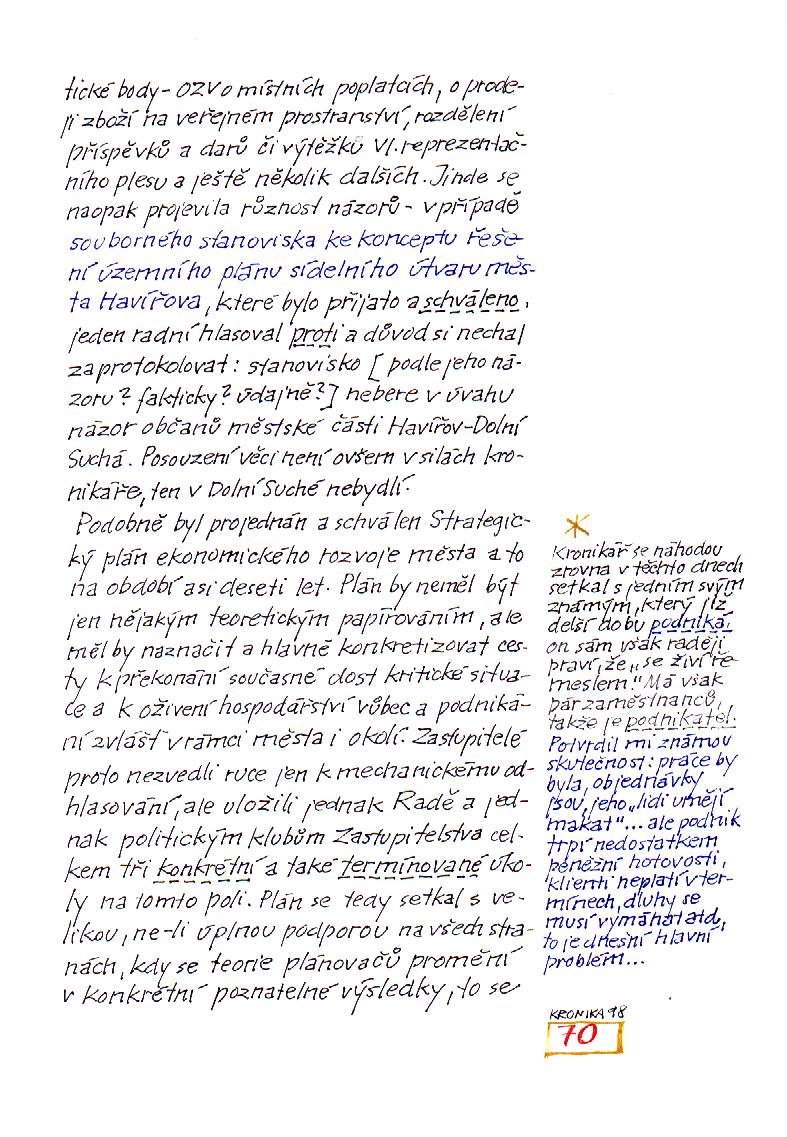 tické body - OZV o místních poplatcích, o prode-
ji zboží na veřejném prostranství, rozdělení
příspěvků a darů či výtěžků VI. reprezentač-
ního plesu a ještě několik dalších. Jinde se
naopak projevila různost názorů - v případě
souborného stanoviska ke konceptu řeše-
ní územního plánu sídelního útvaru měs-
ta Havířova, které bylo přijato a schváleno,
jeden radní hlasoval proti a důvod si nechal
zaprotokolovat: stanovisko [podle jeho ná-
zoru? fakticky? údajně?] nebere v úvahu
názor občanů městské části Havířov-Dolní
Suchá. Posouzení věci není ovšem v silách kro-
nikáře, ten v Dolní Suché nebydlí.
Podobně byl projednán a schválen Strategic-
ký plán ekonomického rozvoje města a to
na období asi deseti let. Plán by neměl být
jen nějakým teoretickým papírováním, ale
měl by naznačit a hlavně konkretizovat ces-
ty k překonání současné dost kritické situa-
ce a k oživení hospodářství vůbec a podniká-
ní zvlášť v rámci města i okolí. Zastupitelé
proto nezvedli ruce jen k mechanickému od-
hlasování, ale uložili jednak Radě a jed-
nak politickým klubům Zastupitelstva cel-
kem tři konkrétní a také termínované úko-
ly na tomto poli. Plán se tedy setkal s ve-
likou, ne-li úplnou podporou na všech stra-
nách, kdy se teorie plánovačů promění
v konkrétní poznatelné výsledky, to se
*
Kronikář se náhodou
zrovna v těchto dnech
setkal s jedním svým
známým, který již
delší dobu podniká,
on sám však raději
praví, že „se živí ře-
meslem." Má však
pár zaměstnanců,
takže je podnikatel.
Potvrdil mi známou
skutečnost: práce by
byla, objednávky
jsou, jeho „lidi umějí
makat"... ale podnik
trpí nedostatkem
peněžní hotovosti,
klienti neplatí v ter-
mínech, dluhy se
musí vymáhat atd,
to je dnešní hlavní
problém...
KRONIKA 98
70